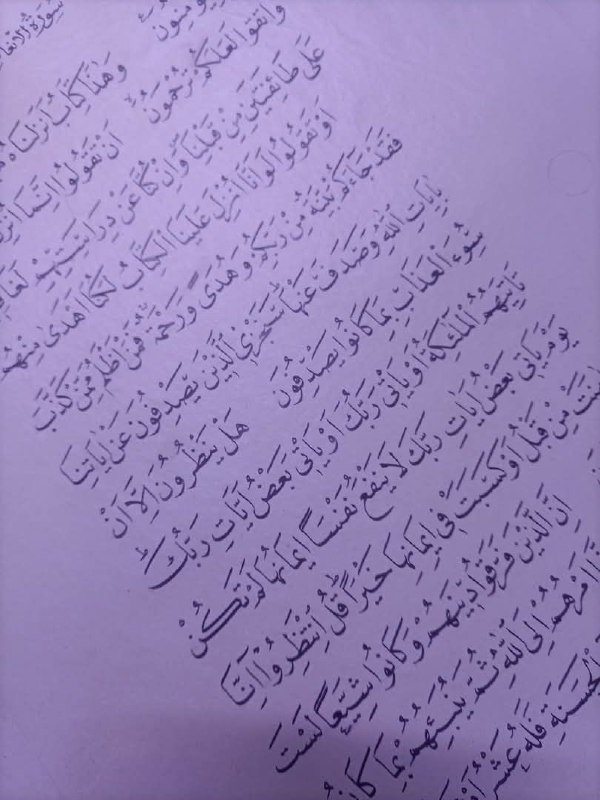 سُورَةُ الْاَنْعَا
يُؤْمِنُونَ وَهٰذَا كِتَابٌ اَنْزَلْنَاهُ
وَاتَّقُوا لَعَلَّكُمْ تُرْحَمُونَ اَنْ تَقُولُوا اِنَّمَا
عَلٰى طَائِفَتَيْنِ مِنْ قَبْلِنَا وَاِنْ كُنَّا عَنْ دِرَاسَتِهِمْ
اَوْ تَقُولُوا لَوْ اَنَّا اُنْزِلَ عَلَيْنَا الْكِتَابُ لَكُنَّا اَهْدٰى مِنْهُمْ
فَقَدْ جَاءَكُمْ بَيِّنَةٌ مِنْ رَبِّكُمْ وَهُدًى وَرَحْمَةٌ فَمَنْ اَظْلَمُ مِمَّنْ كَذَّبَ
بِاٰيَاتِ اللّٰهِ وَصَدَفَ عَنْهَا سَنَجْزِي الَّذِينَ يَصْدِفُونَ عَنْ اٰيَاتِنَا
سُوءَ الْعَذَابِ بِمَا كَانُوا يَصْدِفُونَ هَلْ يَنْظُرُونَ اِلَّا اَنْ
تَأْتِيَهُمُ الْمَلٰئِكَةُ اَوْ يَأْتِيَ رَبُّكَ اَوْ يَأْتِيَ بَعْضُ اٰيَاتِ رَبِّكَ
يَوْمَ يَأْتِي بَعْضُ اٰيَاتِ رَبِّكَ لَا يَنْفَعُ نَفْسًا اِيمَانُهَا لَمْ تَكُنْ
مِنْ قَبْلُ اَوْ كَسَبَتْ فِي اِيمَانِهَا خَيْرًا قُلِ انْتَظِرُوا اِنَّا
اِنَّ الَّذِينَ فَرَّقُوا دِينَهُمْ وَكَانُوا شِيَعًا لَسْتَ
اَمْرُهُمْ اِلَى اللّٰهِ ثُمَّ يُنَبِّئُهُمْ بِمَا كَانُوا
الْحَسَنَةِ فَلَهُ عَشْرُ